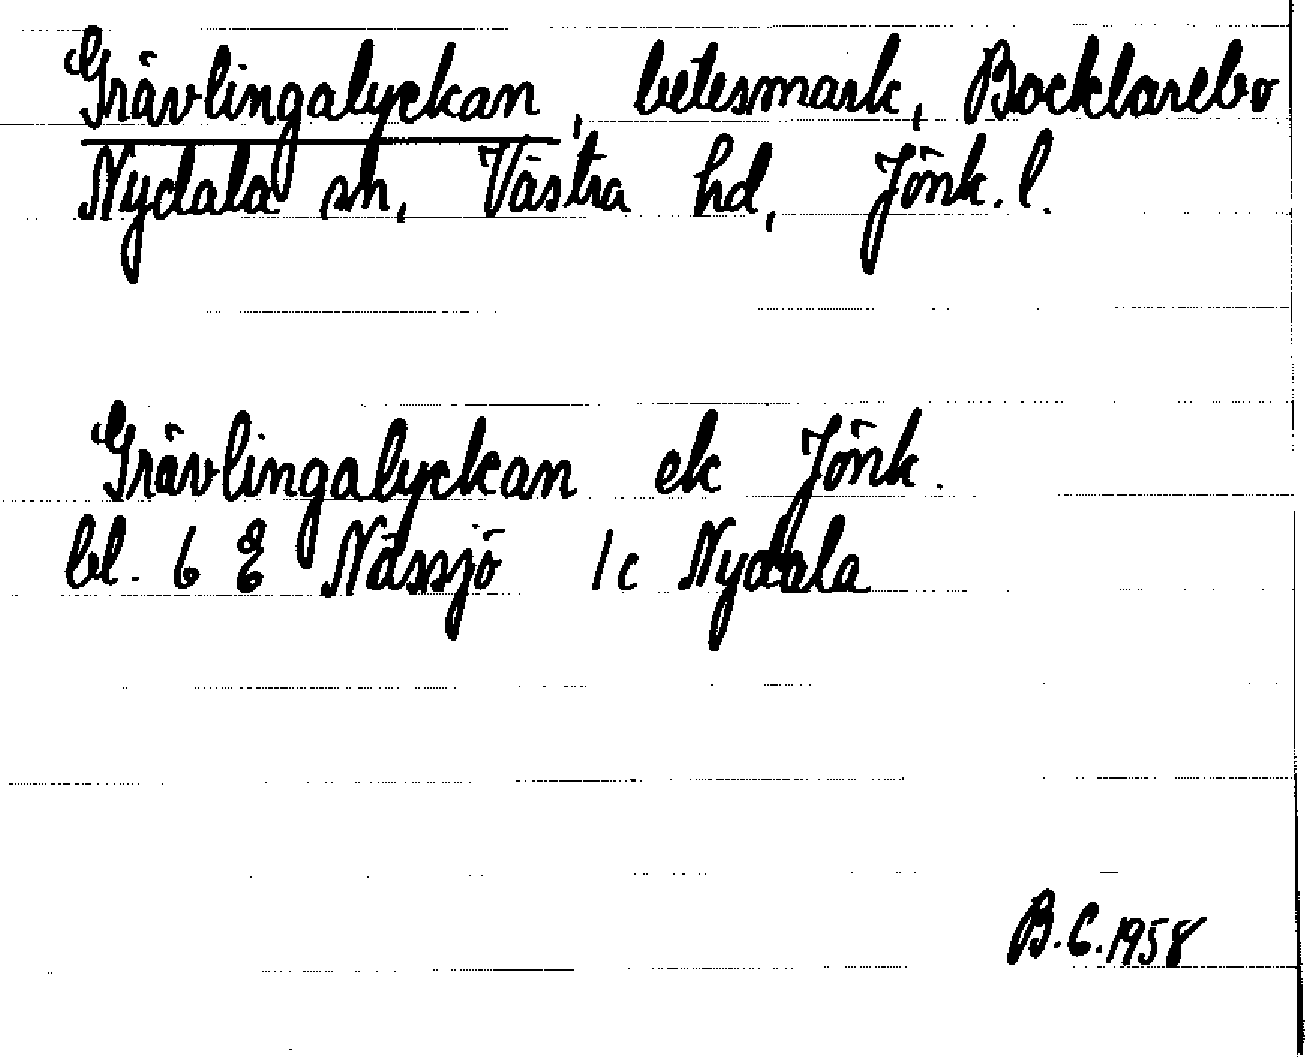 Grävlingalyckan, betesmark, Bocklarebo
Nydala sn, Västra hd, Jönk. l.
Grävlingalyckan ek Jönk.
bl. 6 E Nässjö 1c Nydala
B.C. 1958